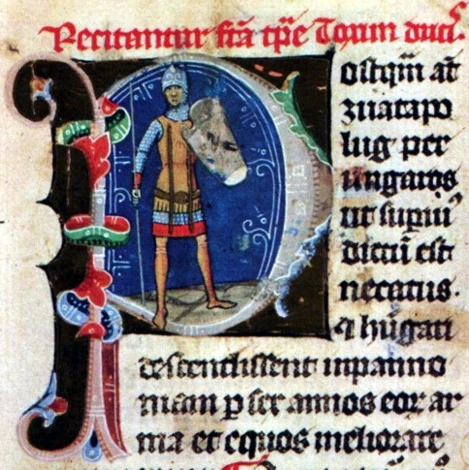 Recitantur fc̄a tp̄e Toxun duciſ.
Poſtqm̄ aūt
zuatapo
lug per
ungaros
ut suꝑiꝰ
dictū est
necatus.
⁊ hūgari
descendissent in panno
niam ꝑ sex annos eoꝝ ar
ma et equos meliorare